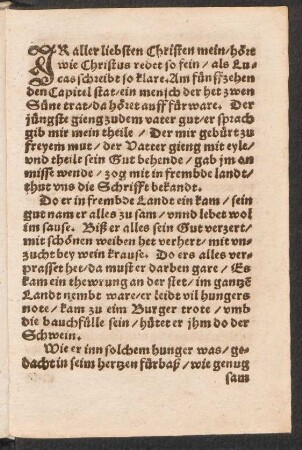 IR aller liebsten Christen mein/hört
wie Christus redet so fein/als Lu-
cas schreibt so klare. Am fünffzehen
den Capitel stat/ein mensch der het zwen
Süne trat/da höret auff fürware. Der
jüngste gieng zu dem vater gut/er sprach
gib mir mein theile/Der mir gebürt zu
freyem mut/der Vatter gieng mit eyle/
vnd theilt sein Gut behende/gab jm on
misse wende/zog mit in frembde landt/
thut vns die Schrifft bekandt.
Do er in frembde Landt ein kam/sein
gut nam er alles zu sam/vnnd lebet wol
im sause. Biß er alles sein Gut verzert/
mit schönen weiben het verhert/mit vn-
zucht bey wein krause. Do ers alles ver-
prasset het/da must er darben gare/Es
kam ein thewrung an der stet/im gantzē
Landt nembt ware/er leidt vil hungers
note/kam zu eim Burger trote/vmb
die bauchfülle sein/hütet er jhm do der
Schwein.
Wie er inn solchem hunger was/ge-
dacht in seim hertzen fürbaß/wie genug
sam